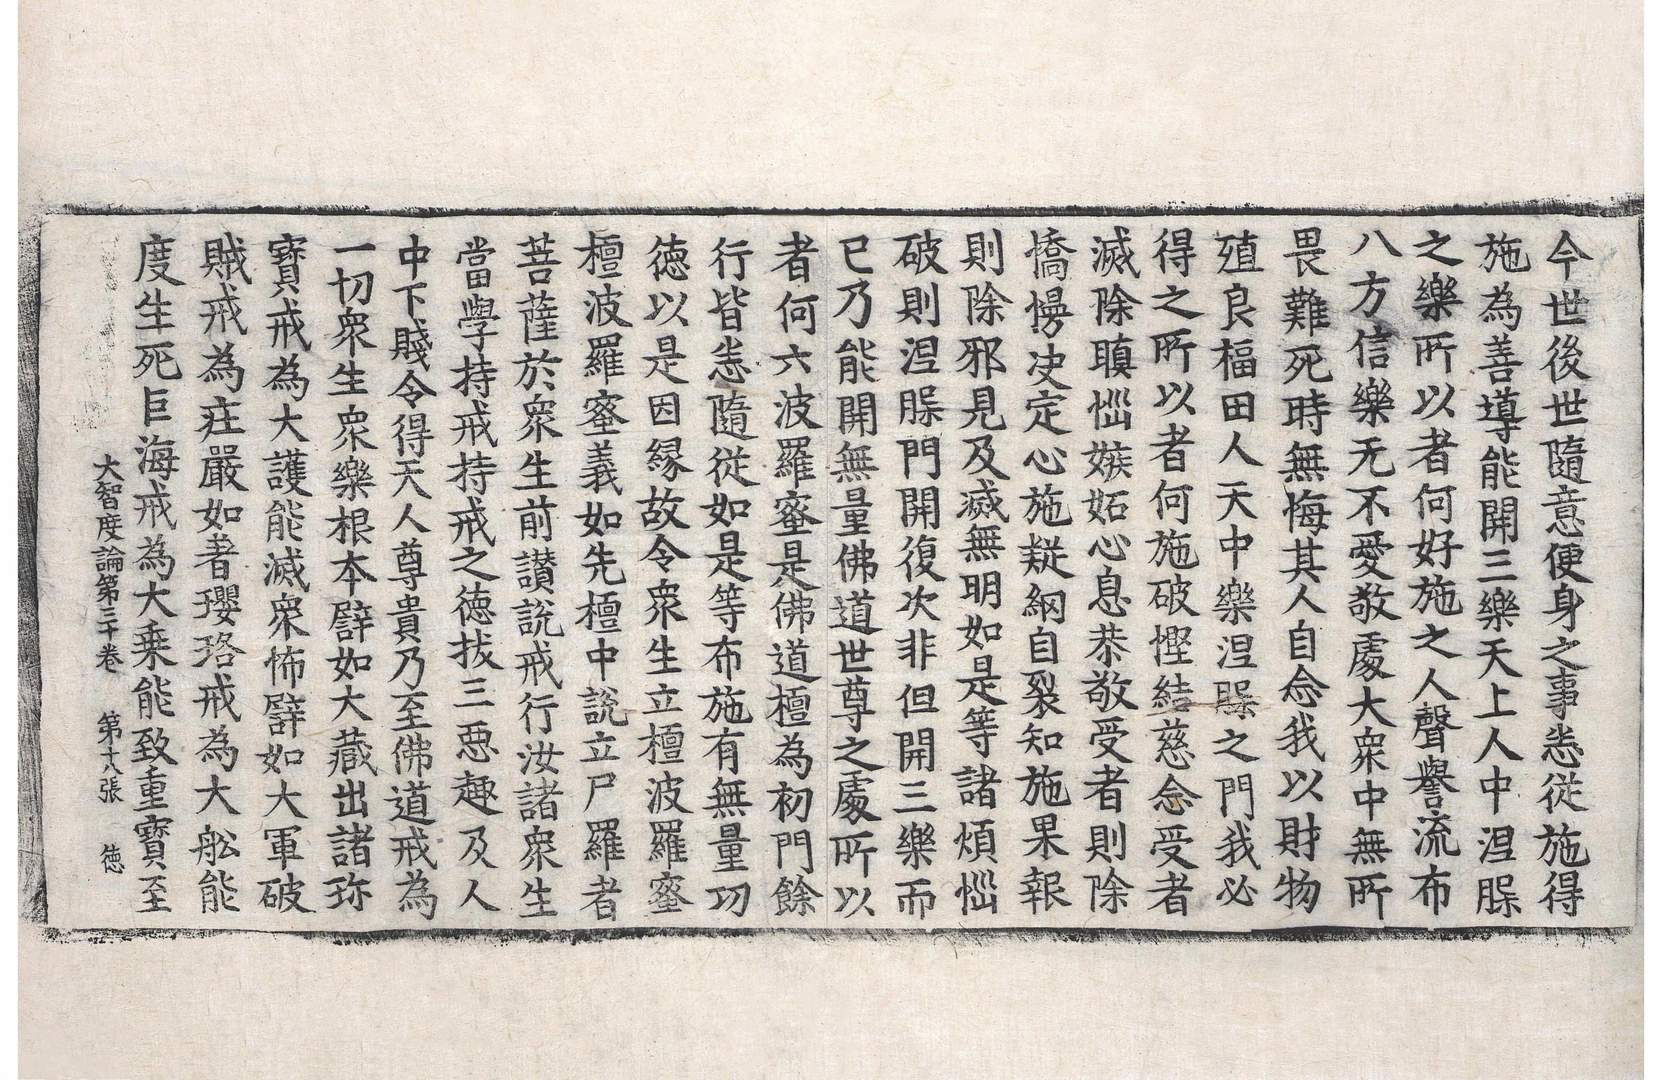 今世後世隨意便身之事悉從施得
施為善導能開三樂天上人中涅槃
之樂所以者何好施之人聲譽流布
八方信樂无不愛敬處大衆中無所
畏難死時無悔其人自念我以財物
殖良福田人天中樂涅槃之門我必
得之所以者何施破慳結慈念受者
滅除瞋惱嫉妬心息恭敬受者則除
憍慢決定心施疑網自裂知施果報
則除邪見及滅無明如是等諸煩惱
破則涅槃門開復次非但開三樂而
已乃能開無量佛道世尊之處所以
者何六波羅蜜是佛道檀為初門餘
行皆悉隨從如是等布施有無量功
徳以是因縁故令衆生立檀波羅蜜
檀波羅蜜義如先檀中說立尸羅者
菩薩於衆生前讃說戒行汝諸衆生
當學持戒持戒之德拔三惡趣及人
中下賤令得天人尊貴乃至佛道戒為
一切衆生衆樂根本譬如大藏出諸珎
寶戒為大護能滅衆怖譬如大軍破
賊戒為莊嚴如著瓔珞戒為大舩能
度生死巨海戒為大乗能致重寶至
大智度論第三十卷 第十六張 徳